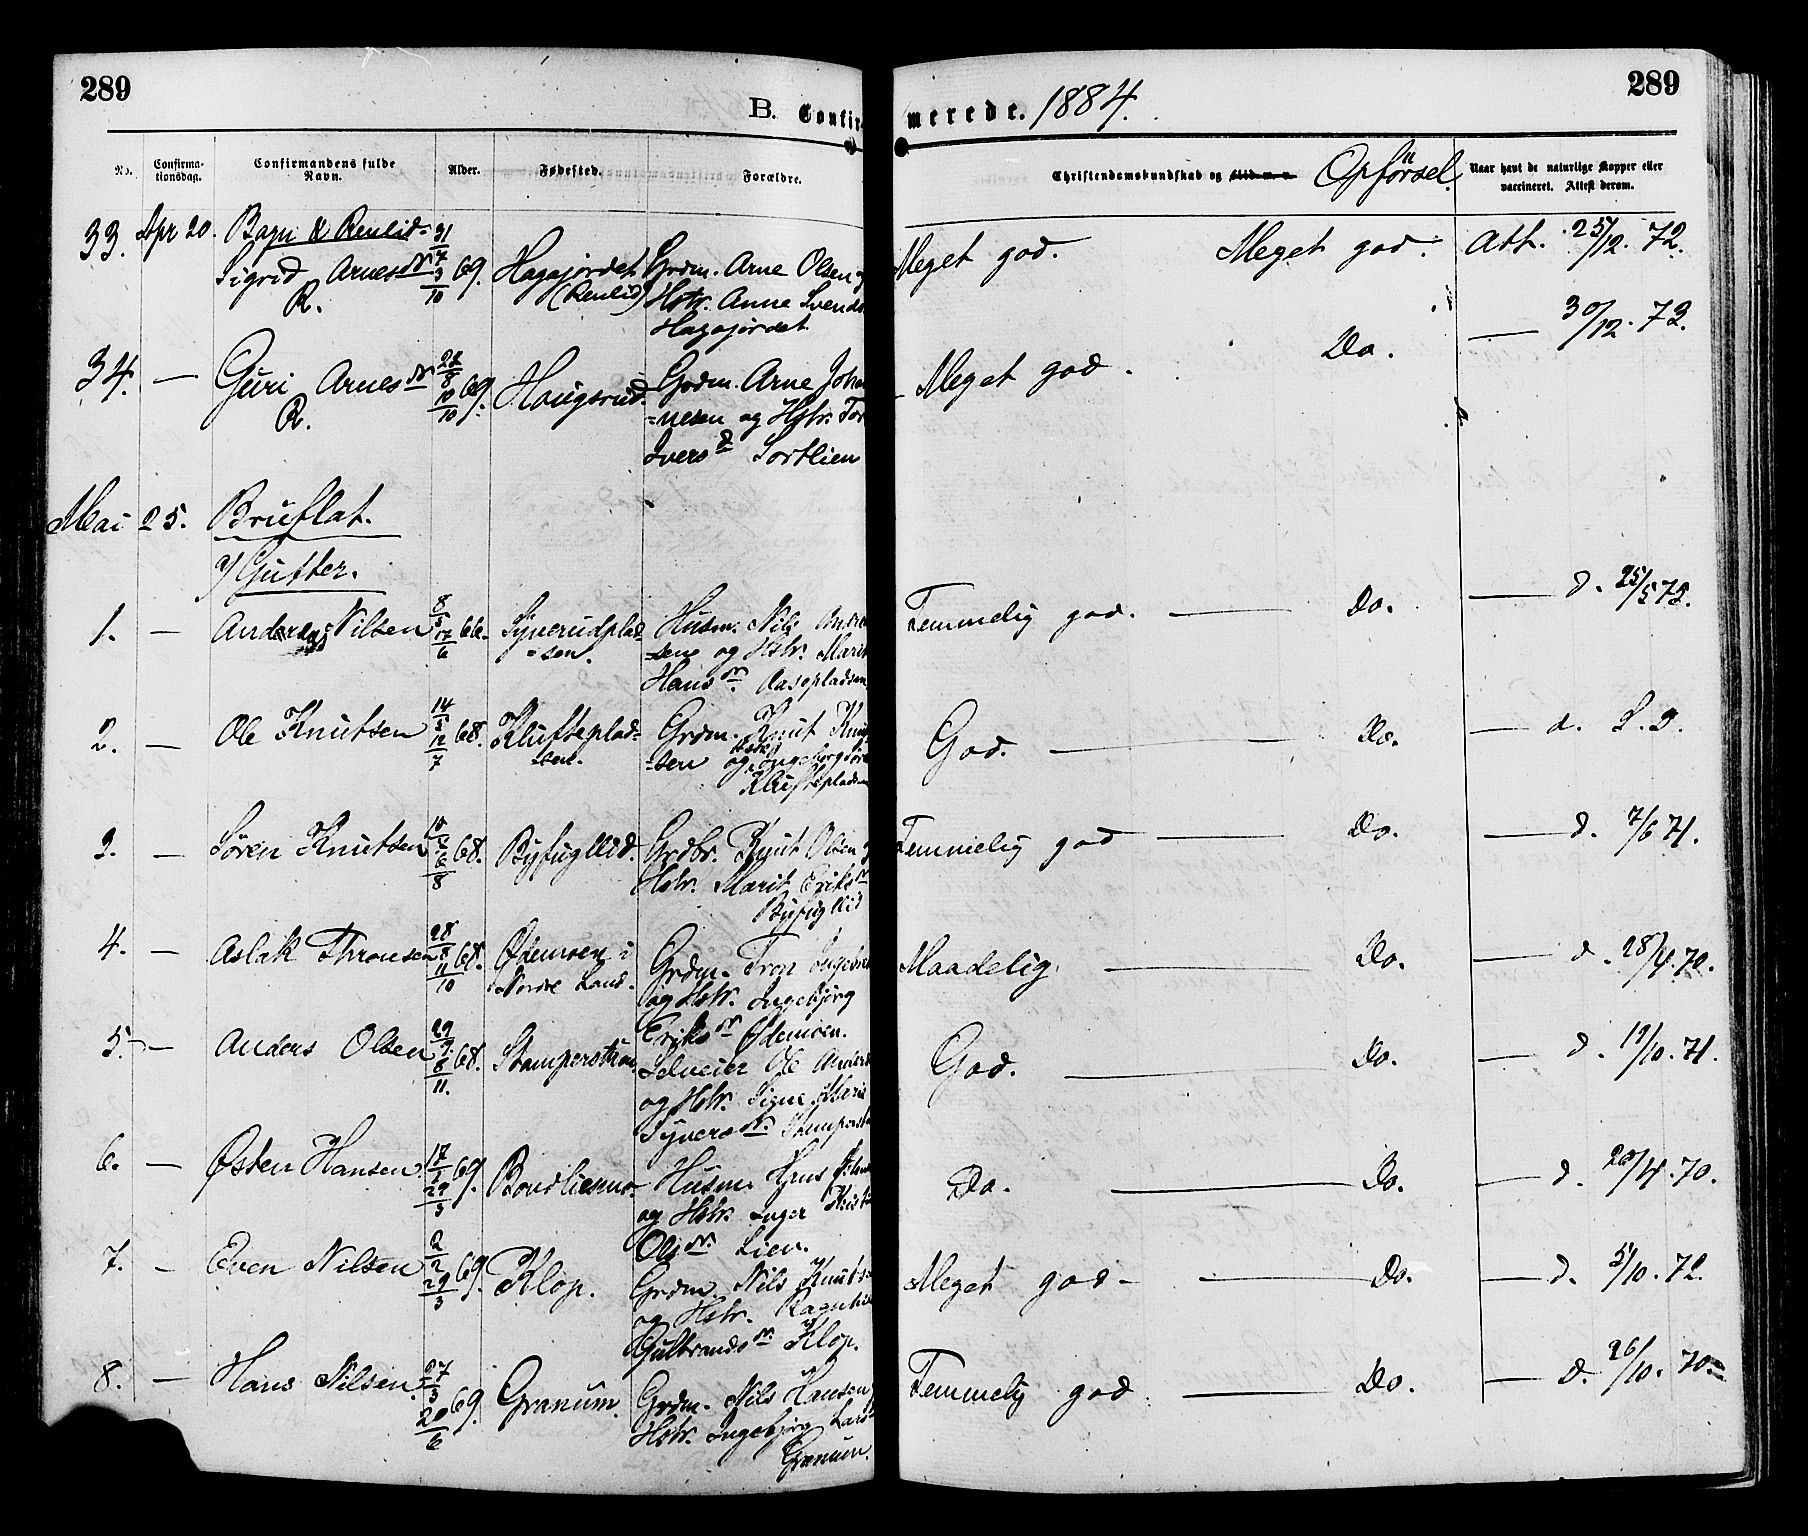 289
289
B. Confir
merede. 1884.
No.
Confirma-
tionsdag.
Confirmandens fulde
Navn.
Alder.
Fødested.
Forældre.
Christendomskundskab og Flid m. v. Opførsel.
Naar havt de naturlige Kopper eller
vaccineret. Attest derom.
33. Apr 20. Bagn & Renlid
Sigrid Arnesdr 31/7 3/10 69. Hagajordet Grdm. Arne Olsen og Meget god. Meget god. Att. 25/12. 72.
R. (Renlid) Hstr. Anne Svends
Hagajordet
34. — Guri Arnesdr 22/8 10/10 69. Haugsrud. Grdm. Arne Johan Meget god. Do. — 30/12. 73.
R. =nesen og Hstr. Tor
Ivers d Sortlien
Mai 25. Bruflat.
a/ Gutter.
1. — Anders Nilsen 8/5 17/6 66. Synerudplad Husm. Nils Andre Temmelig god. — Do. — d. 25/5 72.
=sen. =sen og Hstr. Marit
Hans dr. Aasepladsen
2. — Ole Knutsen 14/5 12/7 68. Klufteplad- Grdm. Knut Knut God. — Do. — d. S. D.
=sen. =sen og Hstr. Ingeborg Søre
Kluftepladsen
3. — Søren Knutsen 68. Byfugllid. Grdbr. Knut Olsen og Temmelig god — Do. — d. 7/6 71.
6/8 Hstr. Marit Eriksdr
Byfugllid
4. — Aslak Thronsen 28/8 11/10 68. Ødemoen i Grdm. Tron Ingebr Maadelig. — Do. — d. 28/4. 70.
Nordre Land. og Hstr. Ingebjørg
Eriksdr Ødemoen.
5. — Anders Olsen 29/9 8/11. 68. Stamperstuen. Selveier Ole Anders God. — Do. — d. 19/10. 71.
og Hstr. Signe Marie
Syversdr. Stamperst
6. — Østen Hansen 29/3 69. Bovdliesmo Husm. Hans Do. — Do. — d. 20/4. 70.
og Hstr. Inger Kristi
Olsdr. Lien.
7. — Even Nilsen 2/2 29/3 69. Klop. Grdm. Nils Knuts Meget god — Do. — d. 5/10. 72.
og Hstr. Ragnhil
Gulbrandsdr. Klop.
8. — Hans Nilsen 27/3 20/6 69. Granum. Grdm. Nils Hansen Temmelig god — Do. — d. 26/10. 70.
Hstr. Ingebjørg Lars
Granum.